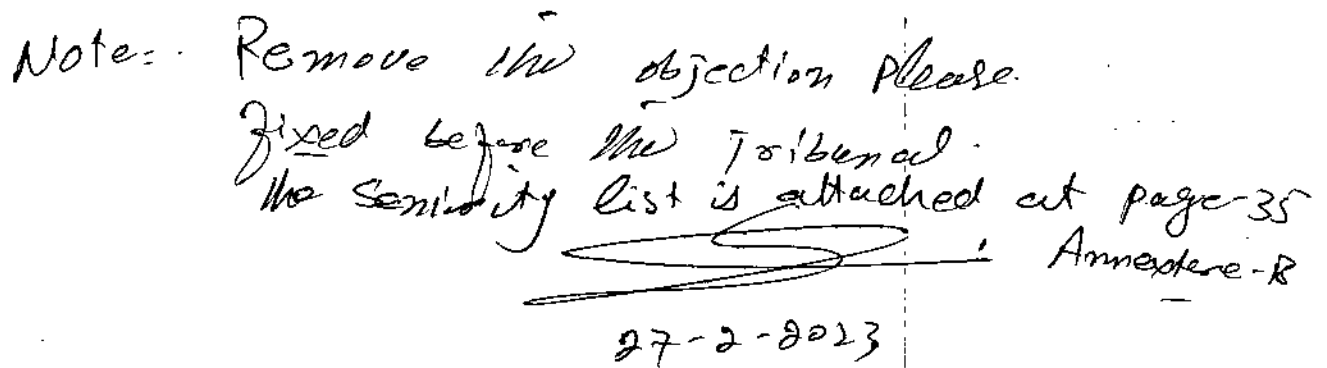 Note:- Remove the objection please.
fixed before the Tribunal.
the Seniority list is attached at page-35
Annexture-B
27-2-2023